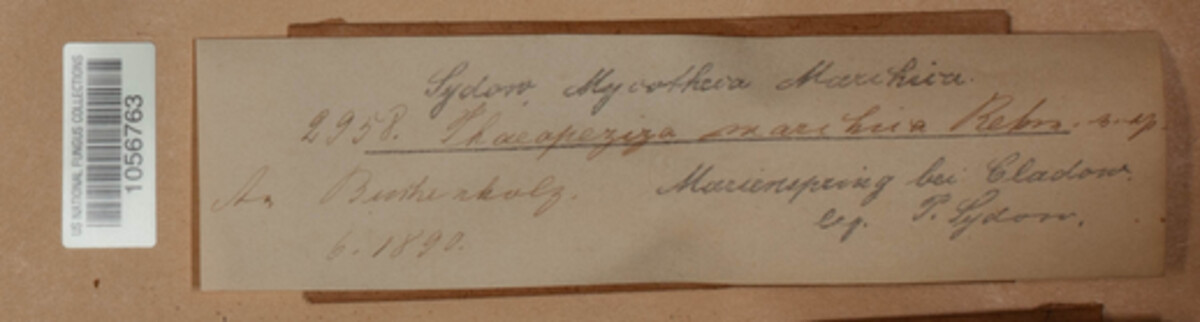 US NATIONAL FUNGUS COLLECTIONS
10567763
Sydow, Mycotheca Marchica.
2958. Phaeopeziza marchica Rehm. n. sp.
An Buchenholz. Marienspring bei Cladow.
6. 1890. leg. P. Sydow.